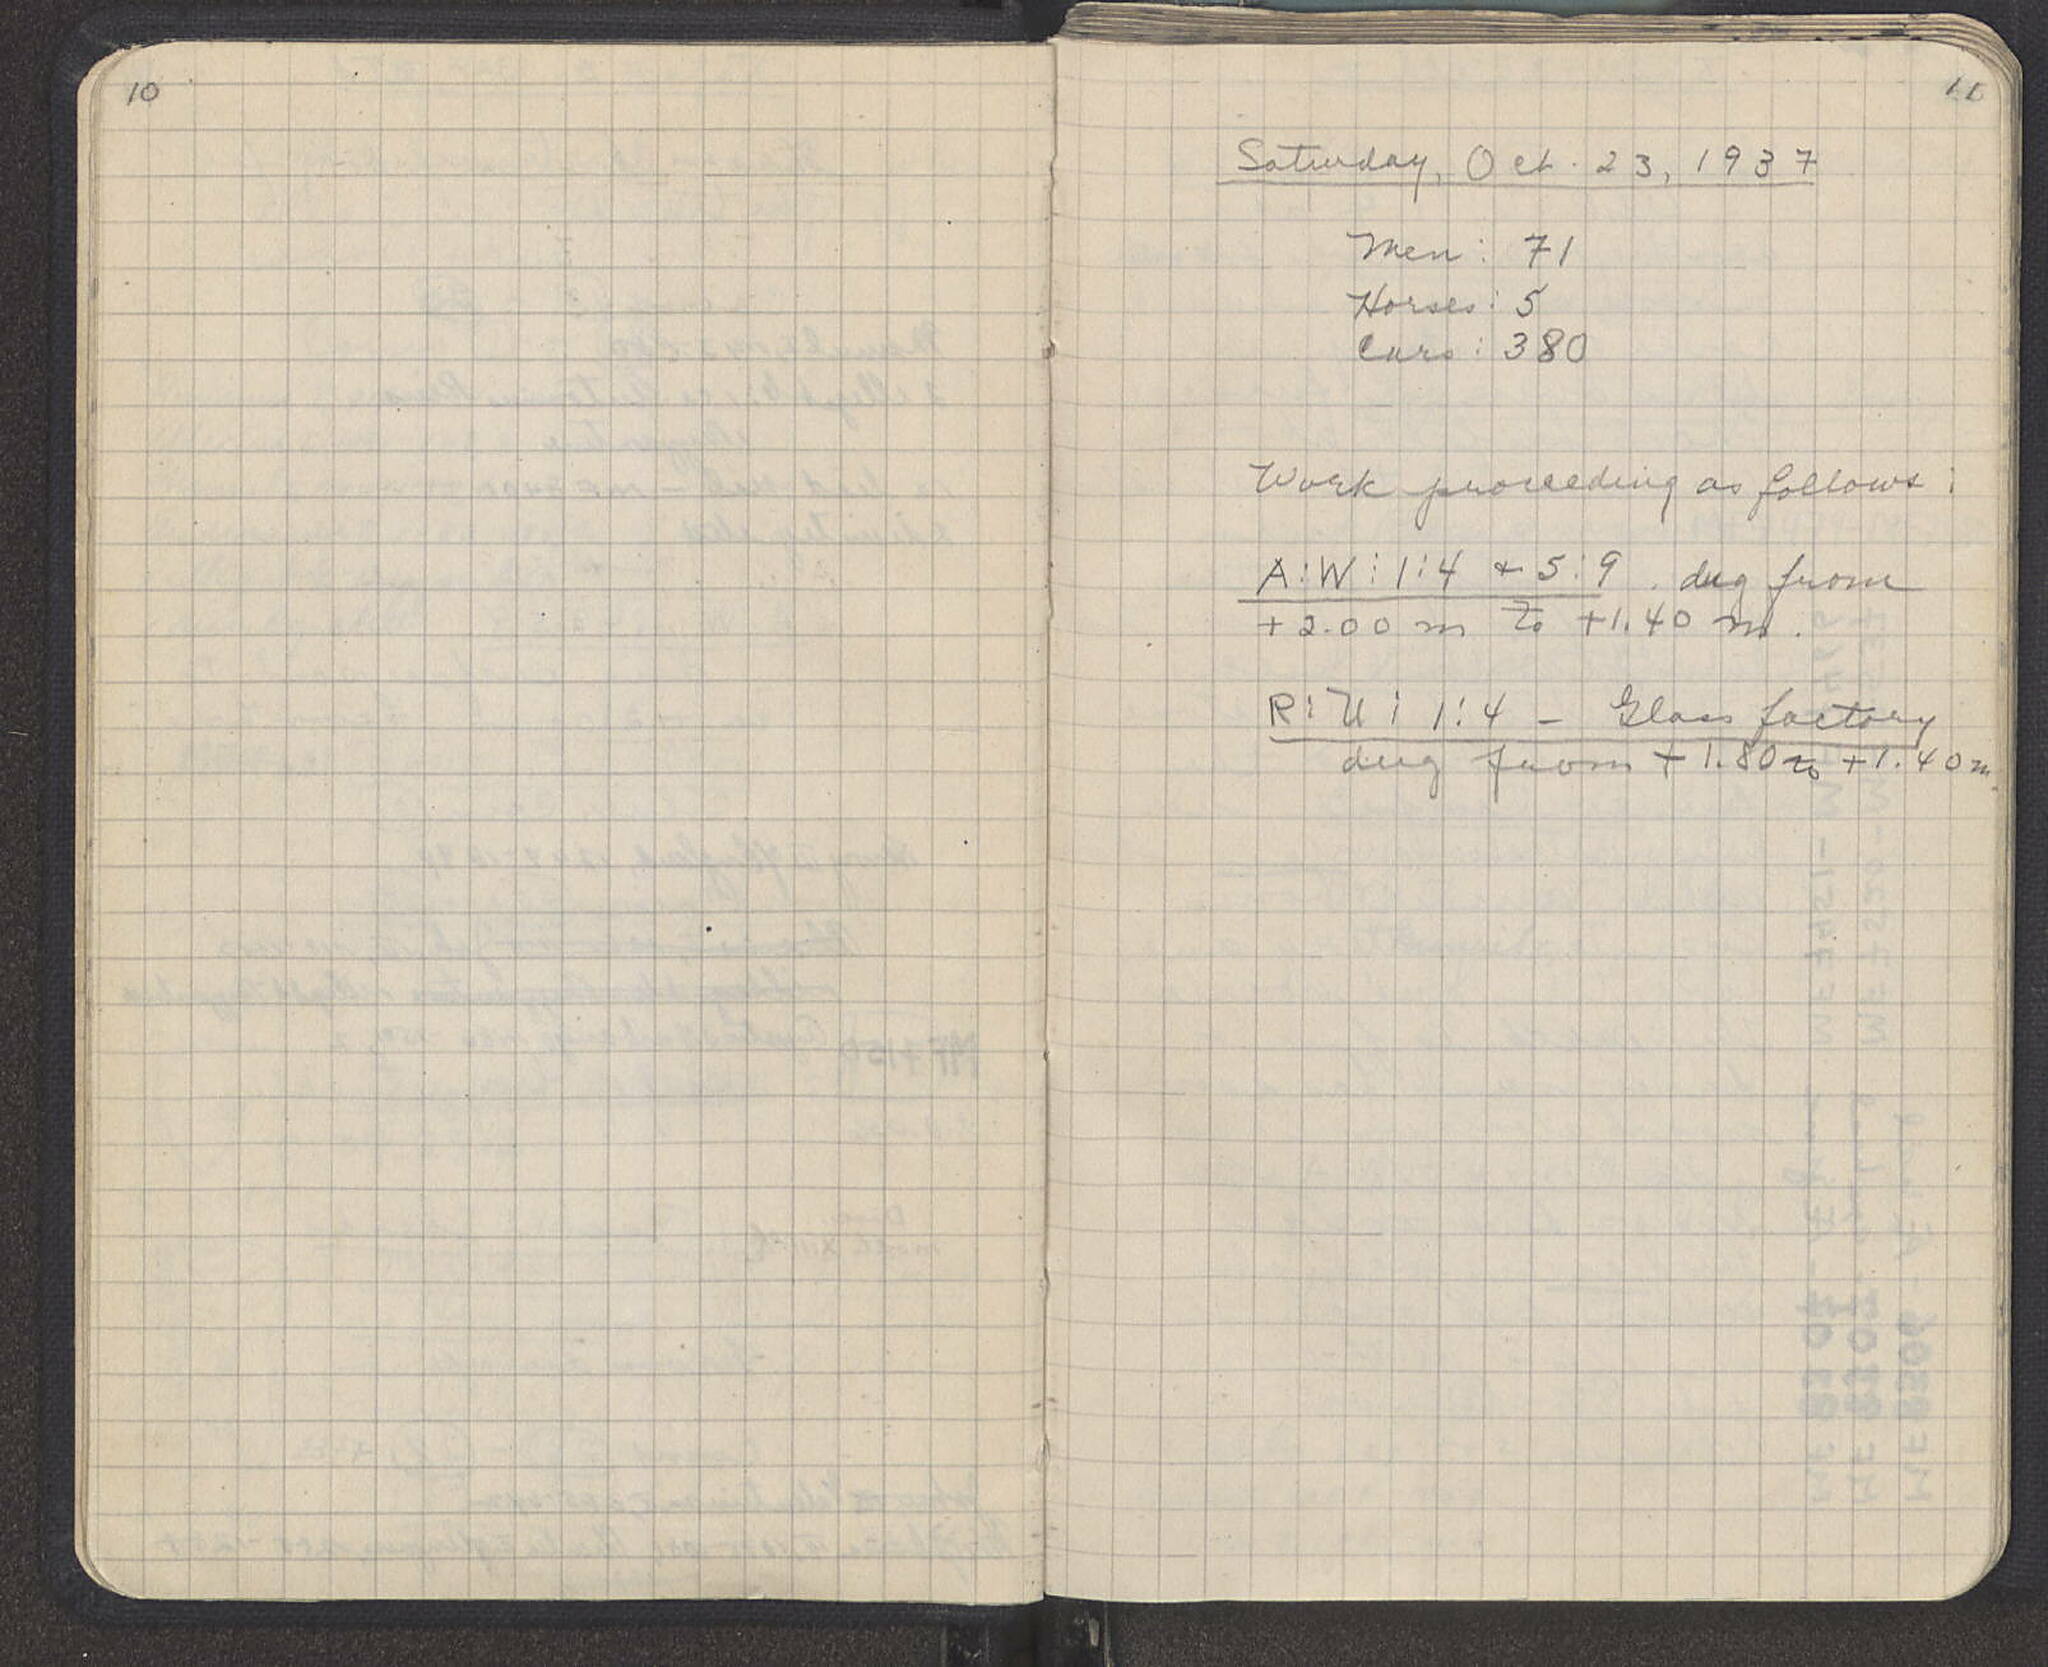 10
11
Saturday, Oct. 23, 1937
Men: 71
Horses: 5
Cars: 380
Work proceeding as follows:
A:W:1:4 + 5:9. dug from
+2.00 m to +1.40 m.
R:U:1:4 - Glass factory
dug from +1.80 to +1.40 m